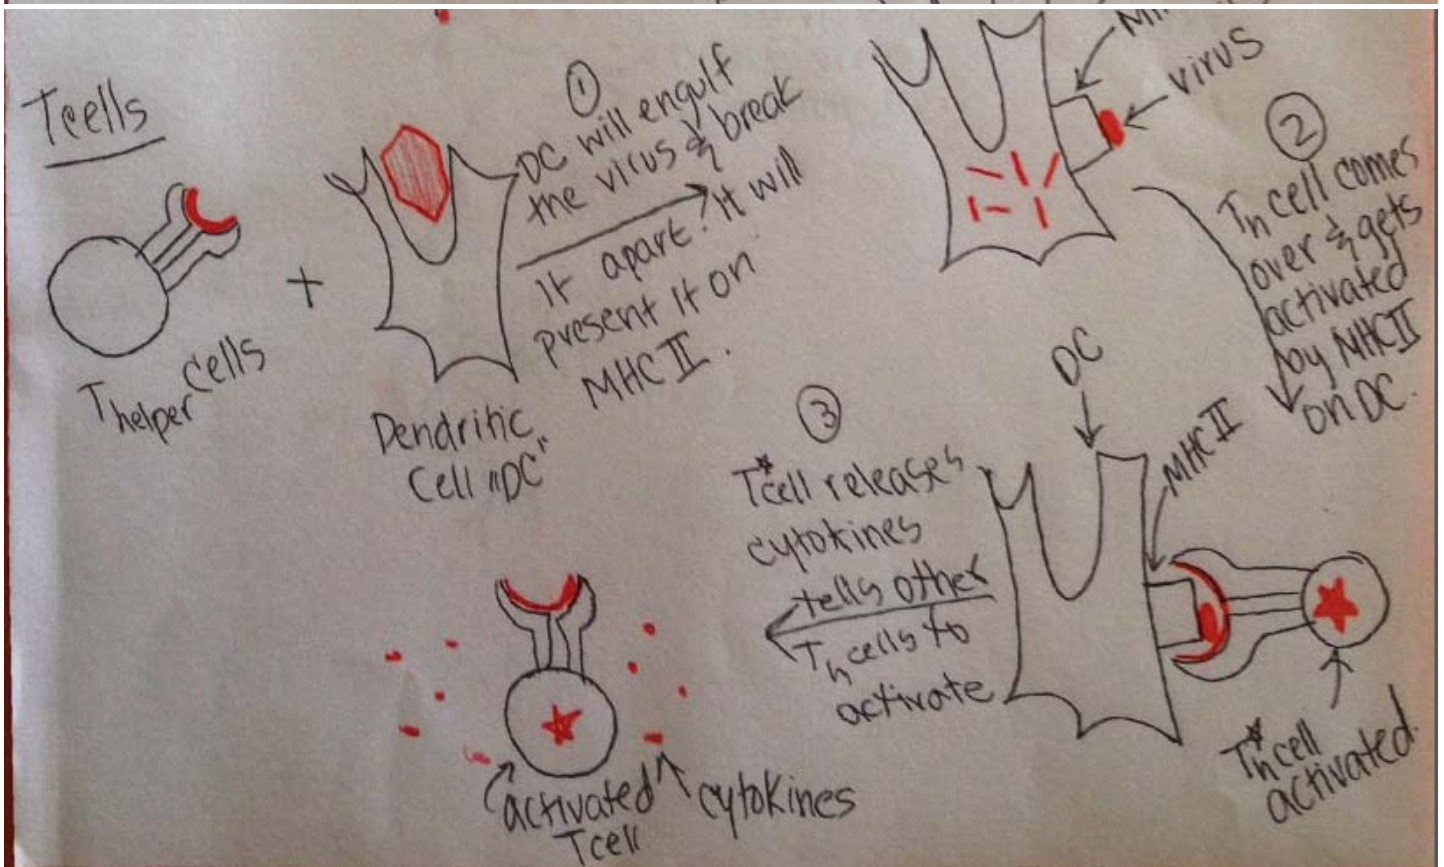 Tcells
T helper cells
+
Dendritic
Cell "DC"
①
DC will engulf
the virus & break
it apart. It will
present it on
MHC II.
virus
②
Tn cell comes
over & gets
activated
by MHC II
on DC.
DC
MHC II
Tn* cell
activated.
③
T* cell releases
cytokines
tells other
Tn cells to
activate
activated
Tcell
cytokines